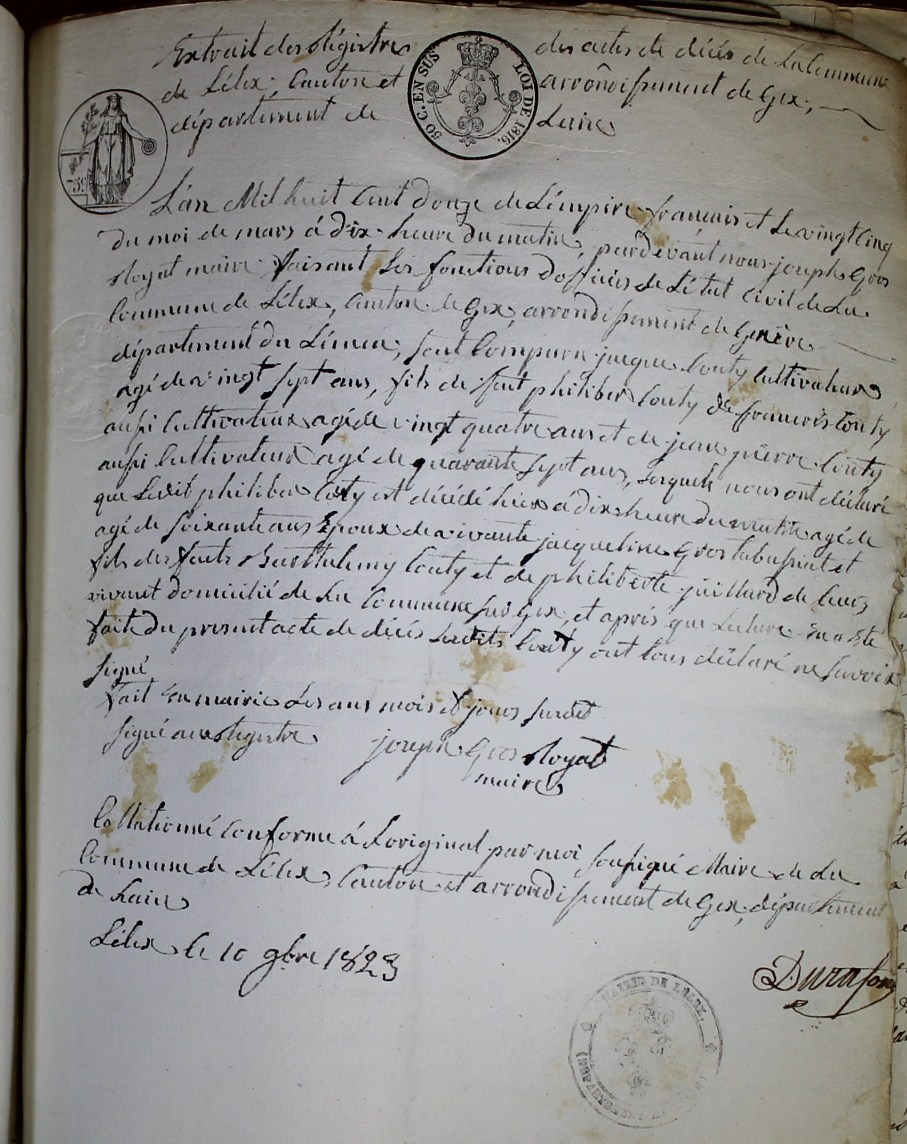 Extrait des Régistres des actes de décès de la Commune
de Lélex, Canton et arrondissement de Gex,
département de Lain
50 C. EN SUS LOI DE 1816.
L'an Mil huit Cent douze de L'émpire français et le vingt Cinq
du moi de mars à dix heure du matin, pardevant nous joseph Gros
Royat maire faisant les fonctions d'officier de L'état Civil de La
Commune de Lélex, Canton de Gex, arrondissement de Genève
département du Léman, sont Comparu jacque Couty Cultivateur
agé de vingt sept ans, fils de feut philiber Couty de francois Couty
aussi Cultivateur agé de vingt quatre ans et de jean pierre Couty
aussi Cultivateur agé de quarante sept ans, lesquels nous ont déclaré
que Ledit philiber Couty est décédé hier à dix heure du matin agé de
agé de soixante ans Epoux de vivante jacqueline Gros
fils des feuts Barthelemy Couty et de philiberte juillard de leurs
vivant domicilié de La Commune de Gex, et après que Lecture En a été
faite du present acte de décès Lesdits Couty ont tous déclaré ne savoir
signé
fait En mairie Les ans mois et jours susdit
signé au Régistre joseph Gros Royat
maire
Collationné Conforme à L'original par moi soussigné Maire de La
Commune de Lélex, Canton et arrondissement de Gex, département
de Lain
Lélex le 10 9bre 1823
MAIRIE DE LÉLEX.